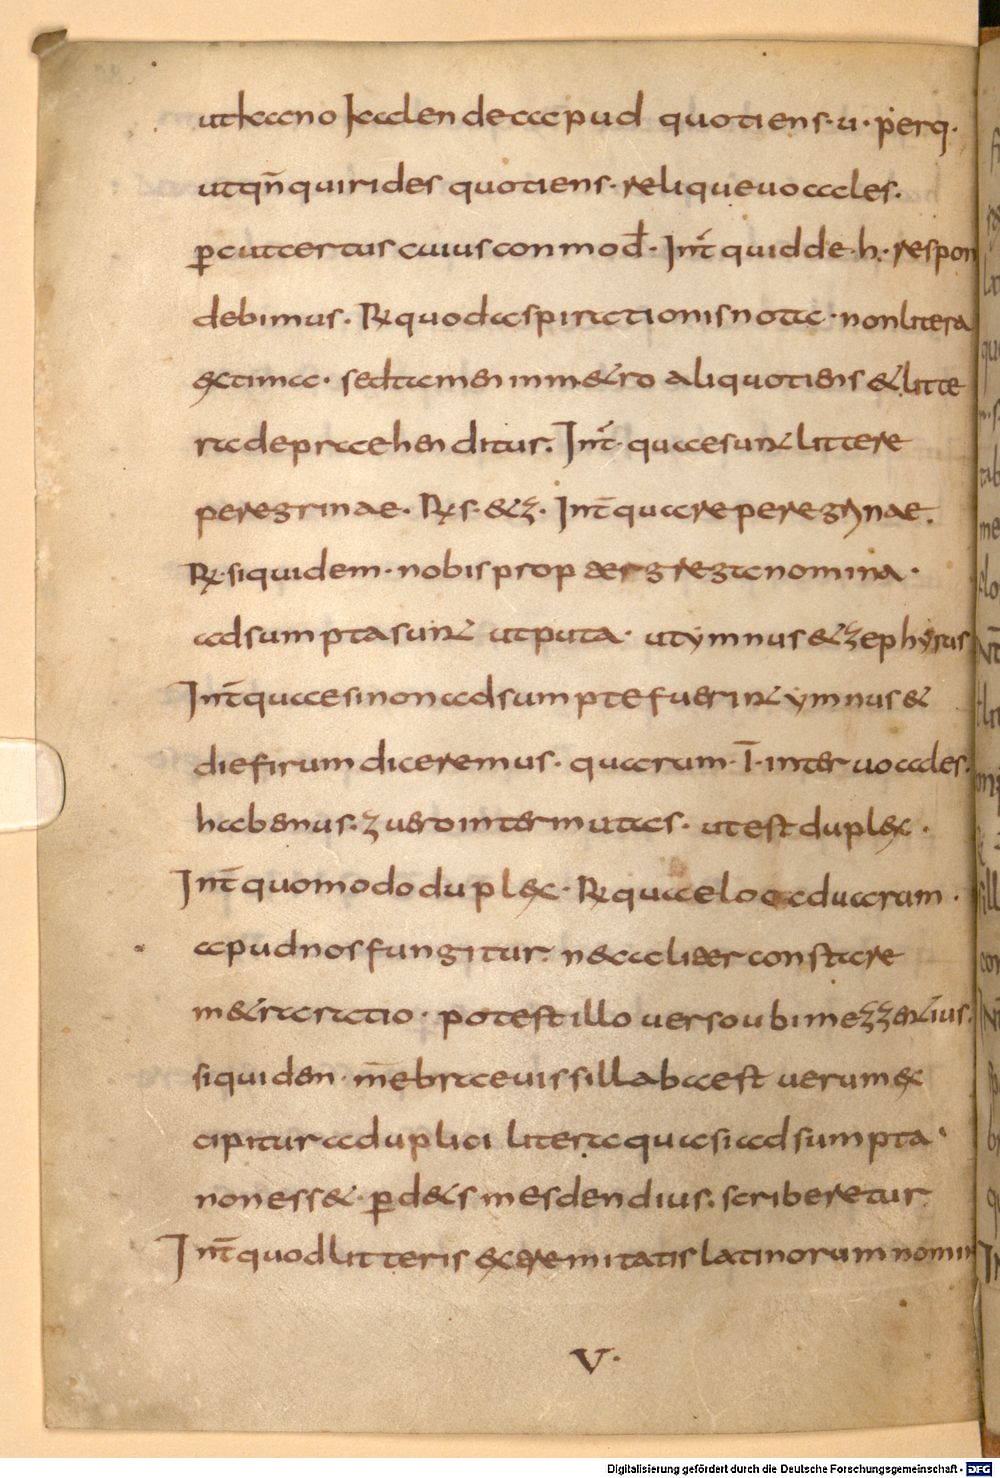 utkano kalendecapud quotiens·u·perq·
utqn̄quirides quotiens·reliqueuocales·
p̲cutcertus cuiusconmod̄· Int̄ quidde·h·respon
debimus· R̵quodaspirationisnota·nonlitera
extima· sedtameninm&ro aliquotiens &litte
radepraehenditur· Int̄· quaesunt littere
peregrinae· R̵ y·&z· Int̄quareperegrinae·
R̵·siquidem·nobisprop aergreganomina·
adsumptasunt utputa· utymnus&zephyrus
Int̄quaesinonadsumptefuerint ymnus&
diefirumdiceremus· quarum·ī·interuocales·
habenus·zuerointermutas· utestduplex·
Int̄quomododuplex· R̵quaelocoaduarum·
apudnosfungitur· n&aliaerconstare
m&raratio· potestillo uersoubimezzentius·
siquiden· m̄ebraeuissillabaest uerumex
cipituraduplici literaquasiadsumpta·
noness&· p̲d&smesdendius·scriberetur
Int̄quodlitteris exeremitatislatinorumnomin
V·
Digitalisierung gefördert durch die Deutsche Forschungsgemeinschaft - DFG